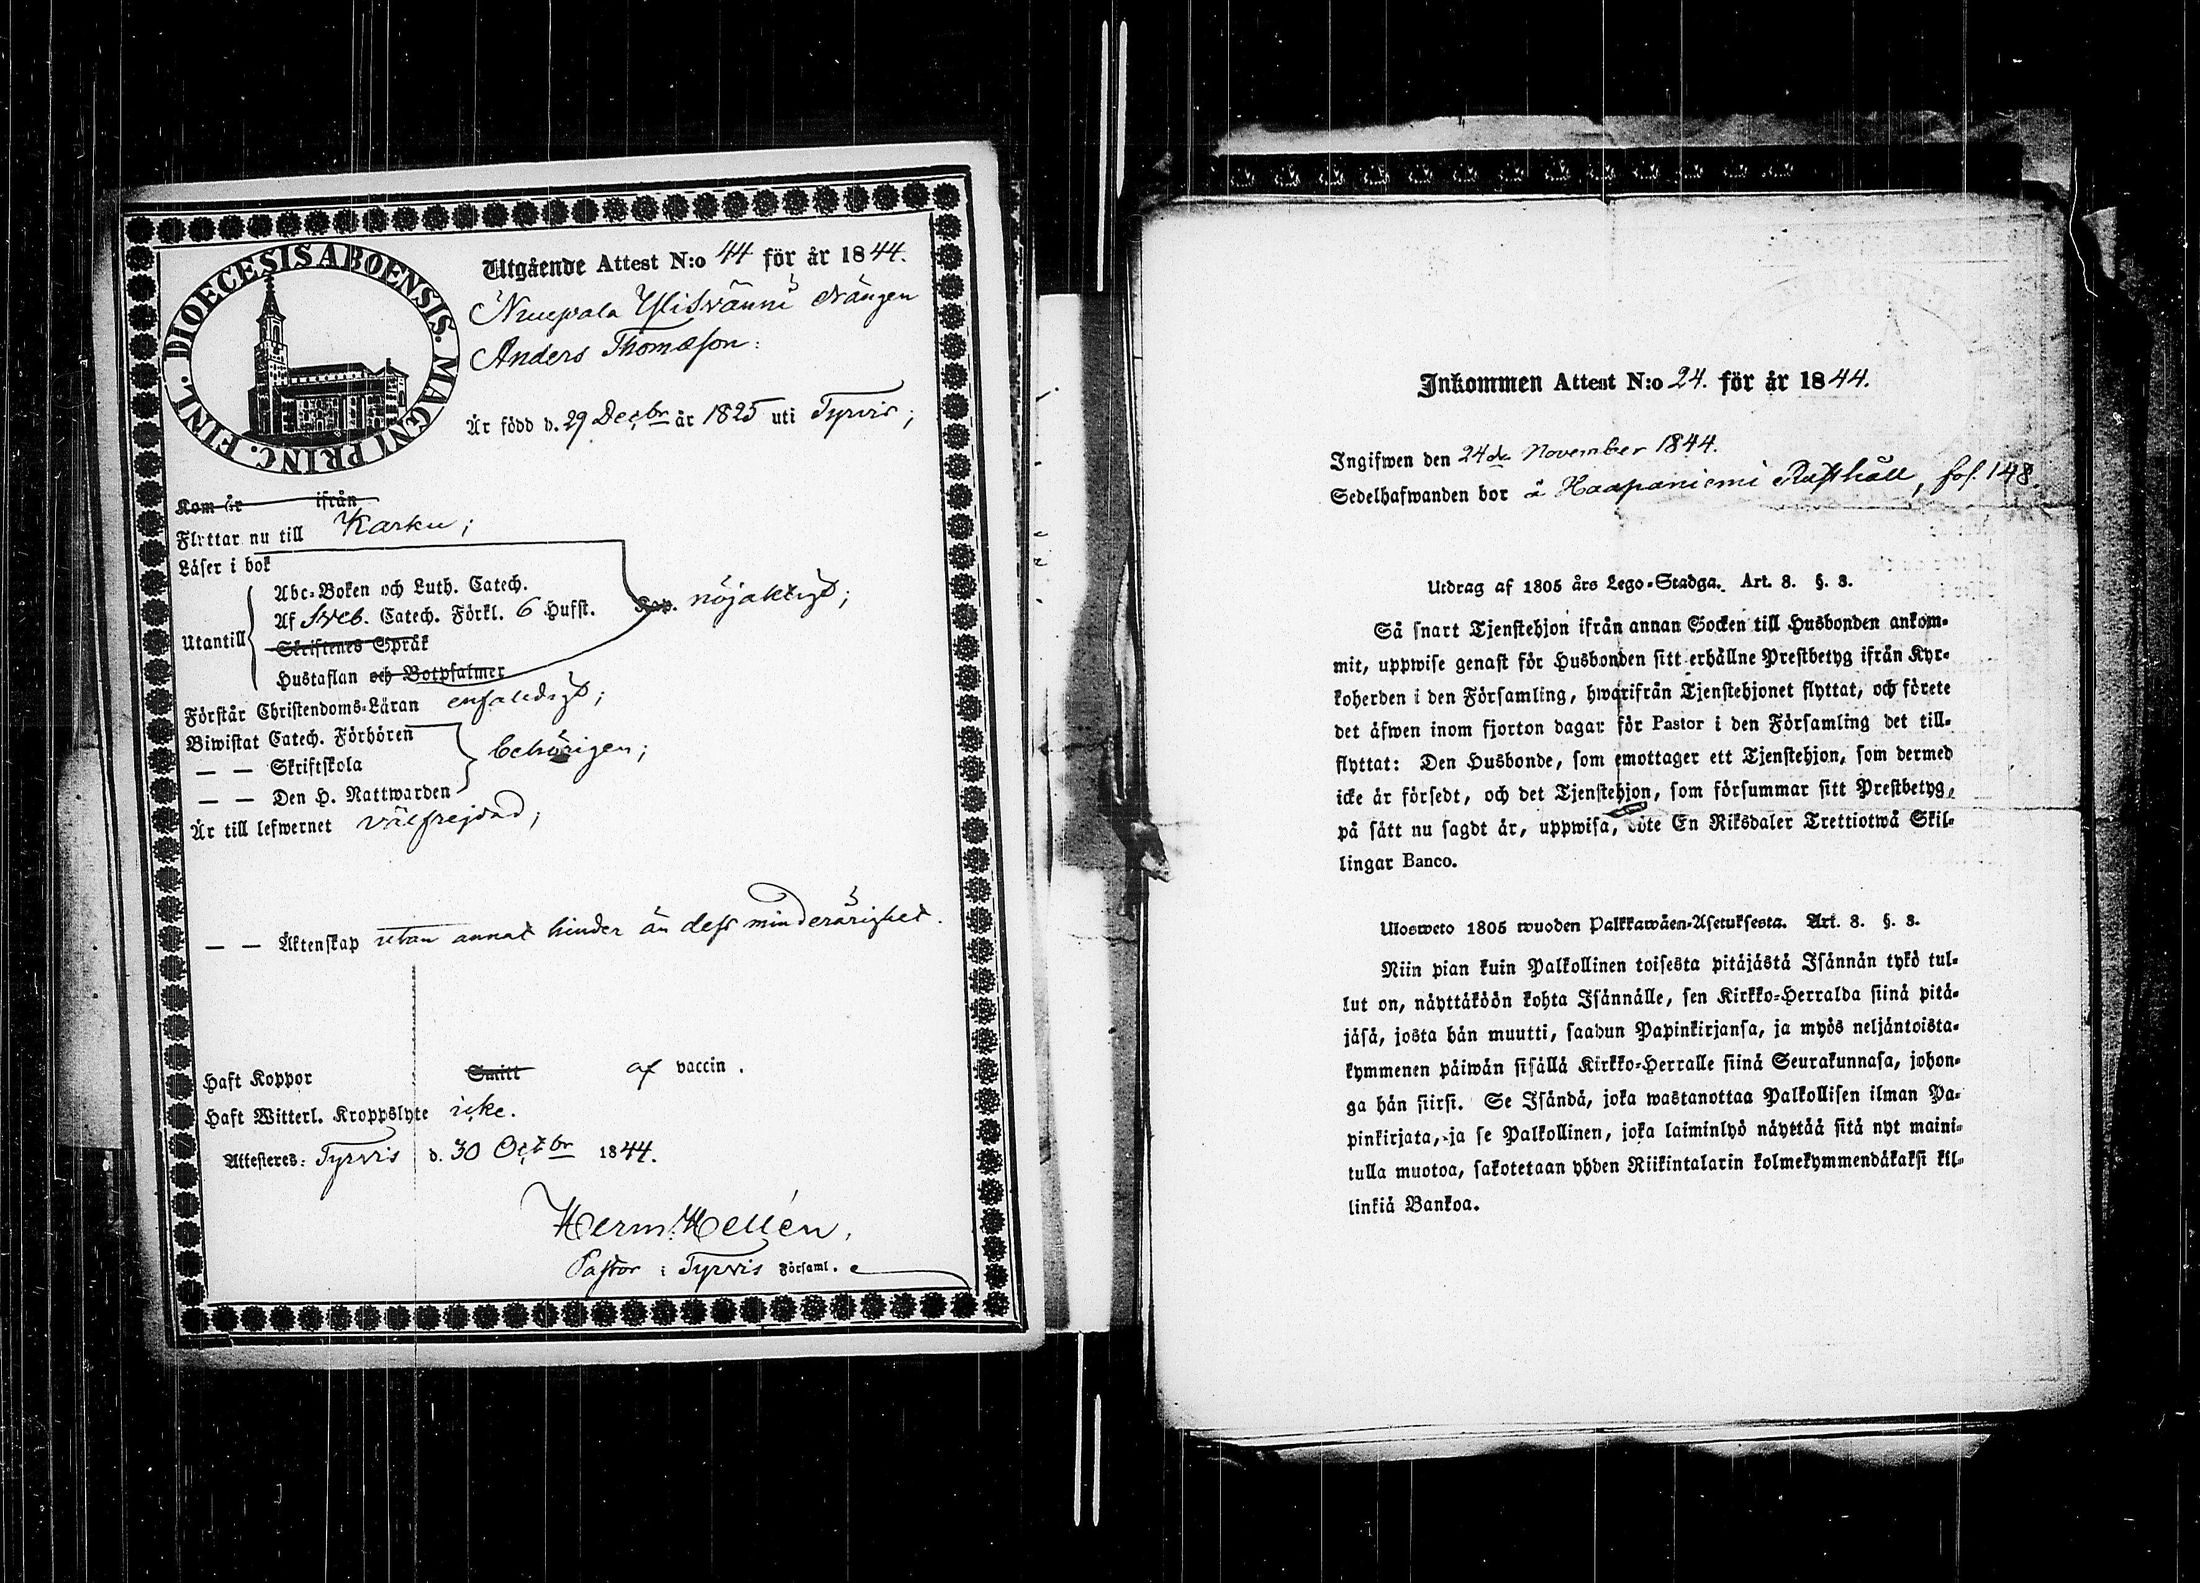 DIOECESIS ABOENSIS. MAGNI PRINC. FINL.
Utgående Attest N:o 44 för år 1844.
Nuupala Ylisvänni drängen
Anders Thomæson.
Är född d. 29 Decbr år 1825 uti Tyrvis;
Kom år ifrån
Flyttar nu till Karku;
Läser i bok
Abc-Boken och Luth. Catech.
Af Sveb. Catech. Förkl. 6 Hufst. Kap. nöjaktigt;
Utantill
Skriftenes Språk
Hustaflan och Botpsalmer
Förstår Christendoms-Läran enfaldigt;
Biwistat Catech. Förhören
— — Skriftskola behörigen;
— — Den H. Nattwarden
Är till lefwernet välfrejdad;
— — Äktenskap utan annat hinder än dess minderårighet.
Haft Koppor Smitt af vaccin.
Haft Witterl. Kroppslyte icke.
Attesteres: Tyrvis d. 30 Octbr 1844.
Herm. Hellén,
Pastor i Tyrvis Församl.
Inkommen Attest N:o 24. för år 1844.
Ingifwen den 24de November 1844.
Sedelhafwanden bor å Haapaniemi Rusthåll, fol. 148.
Utdrag af 1805 års Lego-Stadga. Art. 8. §. 3.
Så snart Tjenstehjon ifrån annan Socken till Husbonden ankom-
mit, uppwise genast för Husbonden sitt erhållne Prestbetyg ifrån Kyr-
koherden i den Församling, hwarifrån Tjenstehjonet flyttat, och förete
det äfwen inom fjorton dagar för Pastor i den Församling det till-
flyttat: Den Husbonde, som emottager ett Tjenstehjon, som dermed
icke är försedt, och det Tjenstehjon, som försummar sitt Prestbetyg,
på sätt nu sagdt är, uppwisa, böte En Riksdaler Trettiotwå Skil-
lingar Banco.
Ulosweto 1805 wuoden Palkkawäen-Asetuksesta. Art. 8. §. 3.
Niin pian kuin Palkollinen toisesta pitäjästä Isännän tykö tul-
lut on, näyttäköön kohta Isännälle, sen Kirkko-Herralda siinä pitä-
jäsä, josta hän muutti, saadun Papinkirjansa, ja myös neljäntoista-
kymmenen päiwän sisällä Kirkko-Herralle siinä Seurakunnasa, johon-
ga hän siirsi. Se Isändä, joka wastanottaa Palkollisen ilman Pa-
pinkirjata, ja se Palkollinen, joka laiminlyö näyttää sitä nyt maini-
tulla muotoa, sakotetaan yhden Riikintalarin kolmekymmendäkaksi kil-
linkiä Bankoa.